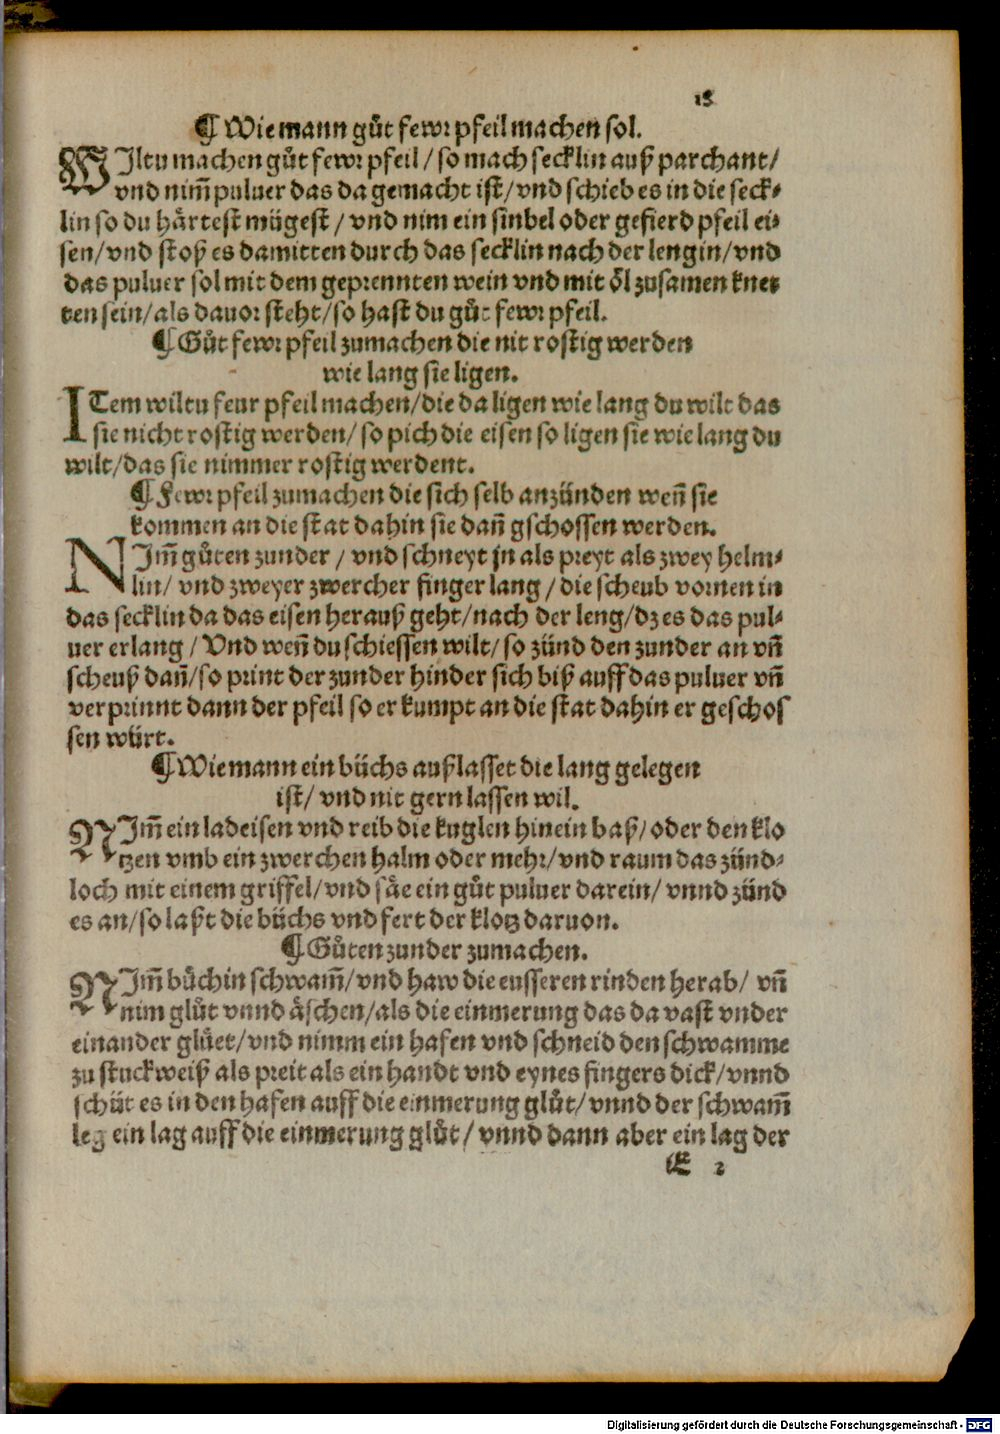 15
¶ Wie mann gůt fewr pfeil machen sol.
WIltu machen gůt fewr pfeil / so mach secklin auß parchant /
vnd nim̃ puluer das da gemacht ist / vnd schieb es in die seck⸗
lin so du hårtest mügest / vnd nim ein sinbel oder gefierd pfeil ei⸗
sen / vnd stoß es damitten durch das secklin nach der lengin / vnd
das puluer sol mit dem geprennten wein vnd mit ǒl zusamen knet
ten sein / als dauor steht / so hast du gůt fewr pfeil.
¶ Gůt fewr pfeil zumachen die nit rostig werden
wie lang sie ligen.
ITem wiltu feur pfeil machen / die da ligen wie lang du wilt das
sie nicht rostig werden / so pich die eisen so ligen sie wie lang du
wilt / das sie nimmer rostig werdent.
¶ Fewr pfeil zumachen die sich selb anzünden weñ sie
kommen an die stat dahin sie dañ gschossen werden.
NIm̃ gůten zunder / vnd schneyt jn als preyt als zwey helm⸗
lin / vnd zweyer zwercher finger lang / die scheub vornen in
das secklin da das eisen herauß geht / nach der leng / dz es das pul⸗
uer erlang / Vnd weñ du schiessen wilt / so zünd den zunder an vñ
scheuß dañ / so print der zunder hinder sich biß auff das puluer vñ
verprinnt dann der pfeil so er kumpt an die stat dahin er geschos
sen würt.
¶ Wie mann ein büchs außlasset die lang gelegen
ist / vnd nit gern lassen wil.
NIm̃ ein ladeisen vnd reib die kuglen hinein baß / oder den klo
tzen vmb ein zwerchen halm oder mehr / vnd raum das zünd⸗
loch mit einem griffel / vnd såe ein gůt puluer darein / vnnd zünd
es an / so laßt die büchs vnd fert der klotz daruon.
¶ Gůten zunder zumachen.
NIm̃ bůchin schwam̃ / vnd haw die eusseren rinden herab / vñ
nim glůt vnnd åschen / als die einmerung das da vast vnder
einander glůet / vnd nimm ein hafen vnd schneid den schwamme
zu stuckweiß als preit als ein handt vnd eynes fingers dick / vnnd
schüt es in den hafen auff die einmerung glůt / vnnd der schwam̃
leg ein lag auff die einmerung glůt / vnnd dann aber ein lag der
E 2
Digitalisierung gefördert durch die Deutsche Forschungsgemeinschaft - DFG